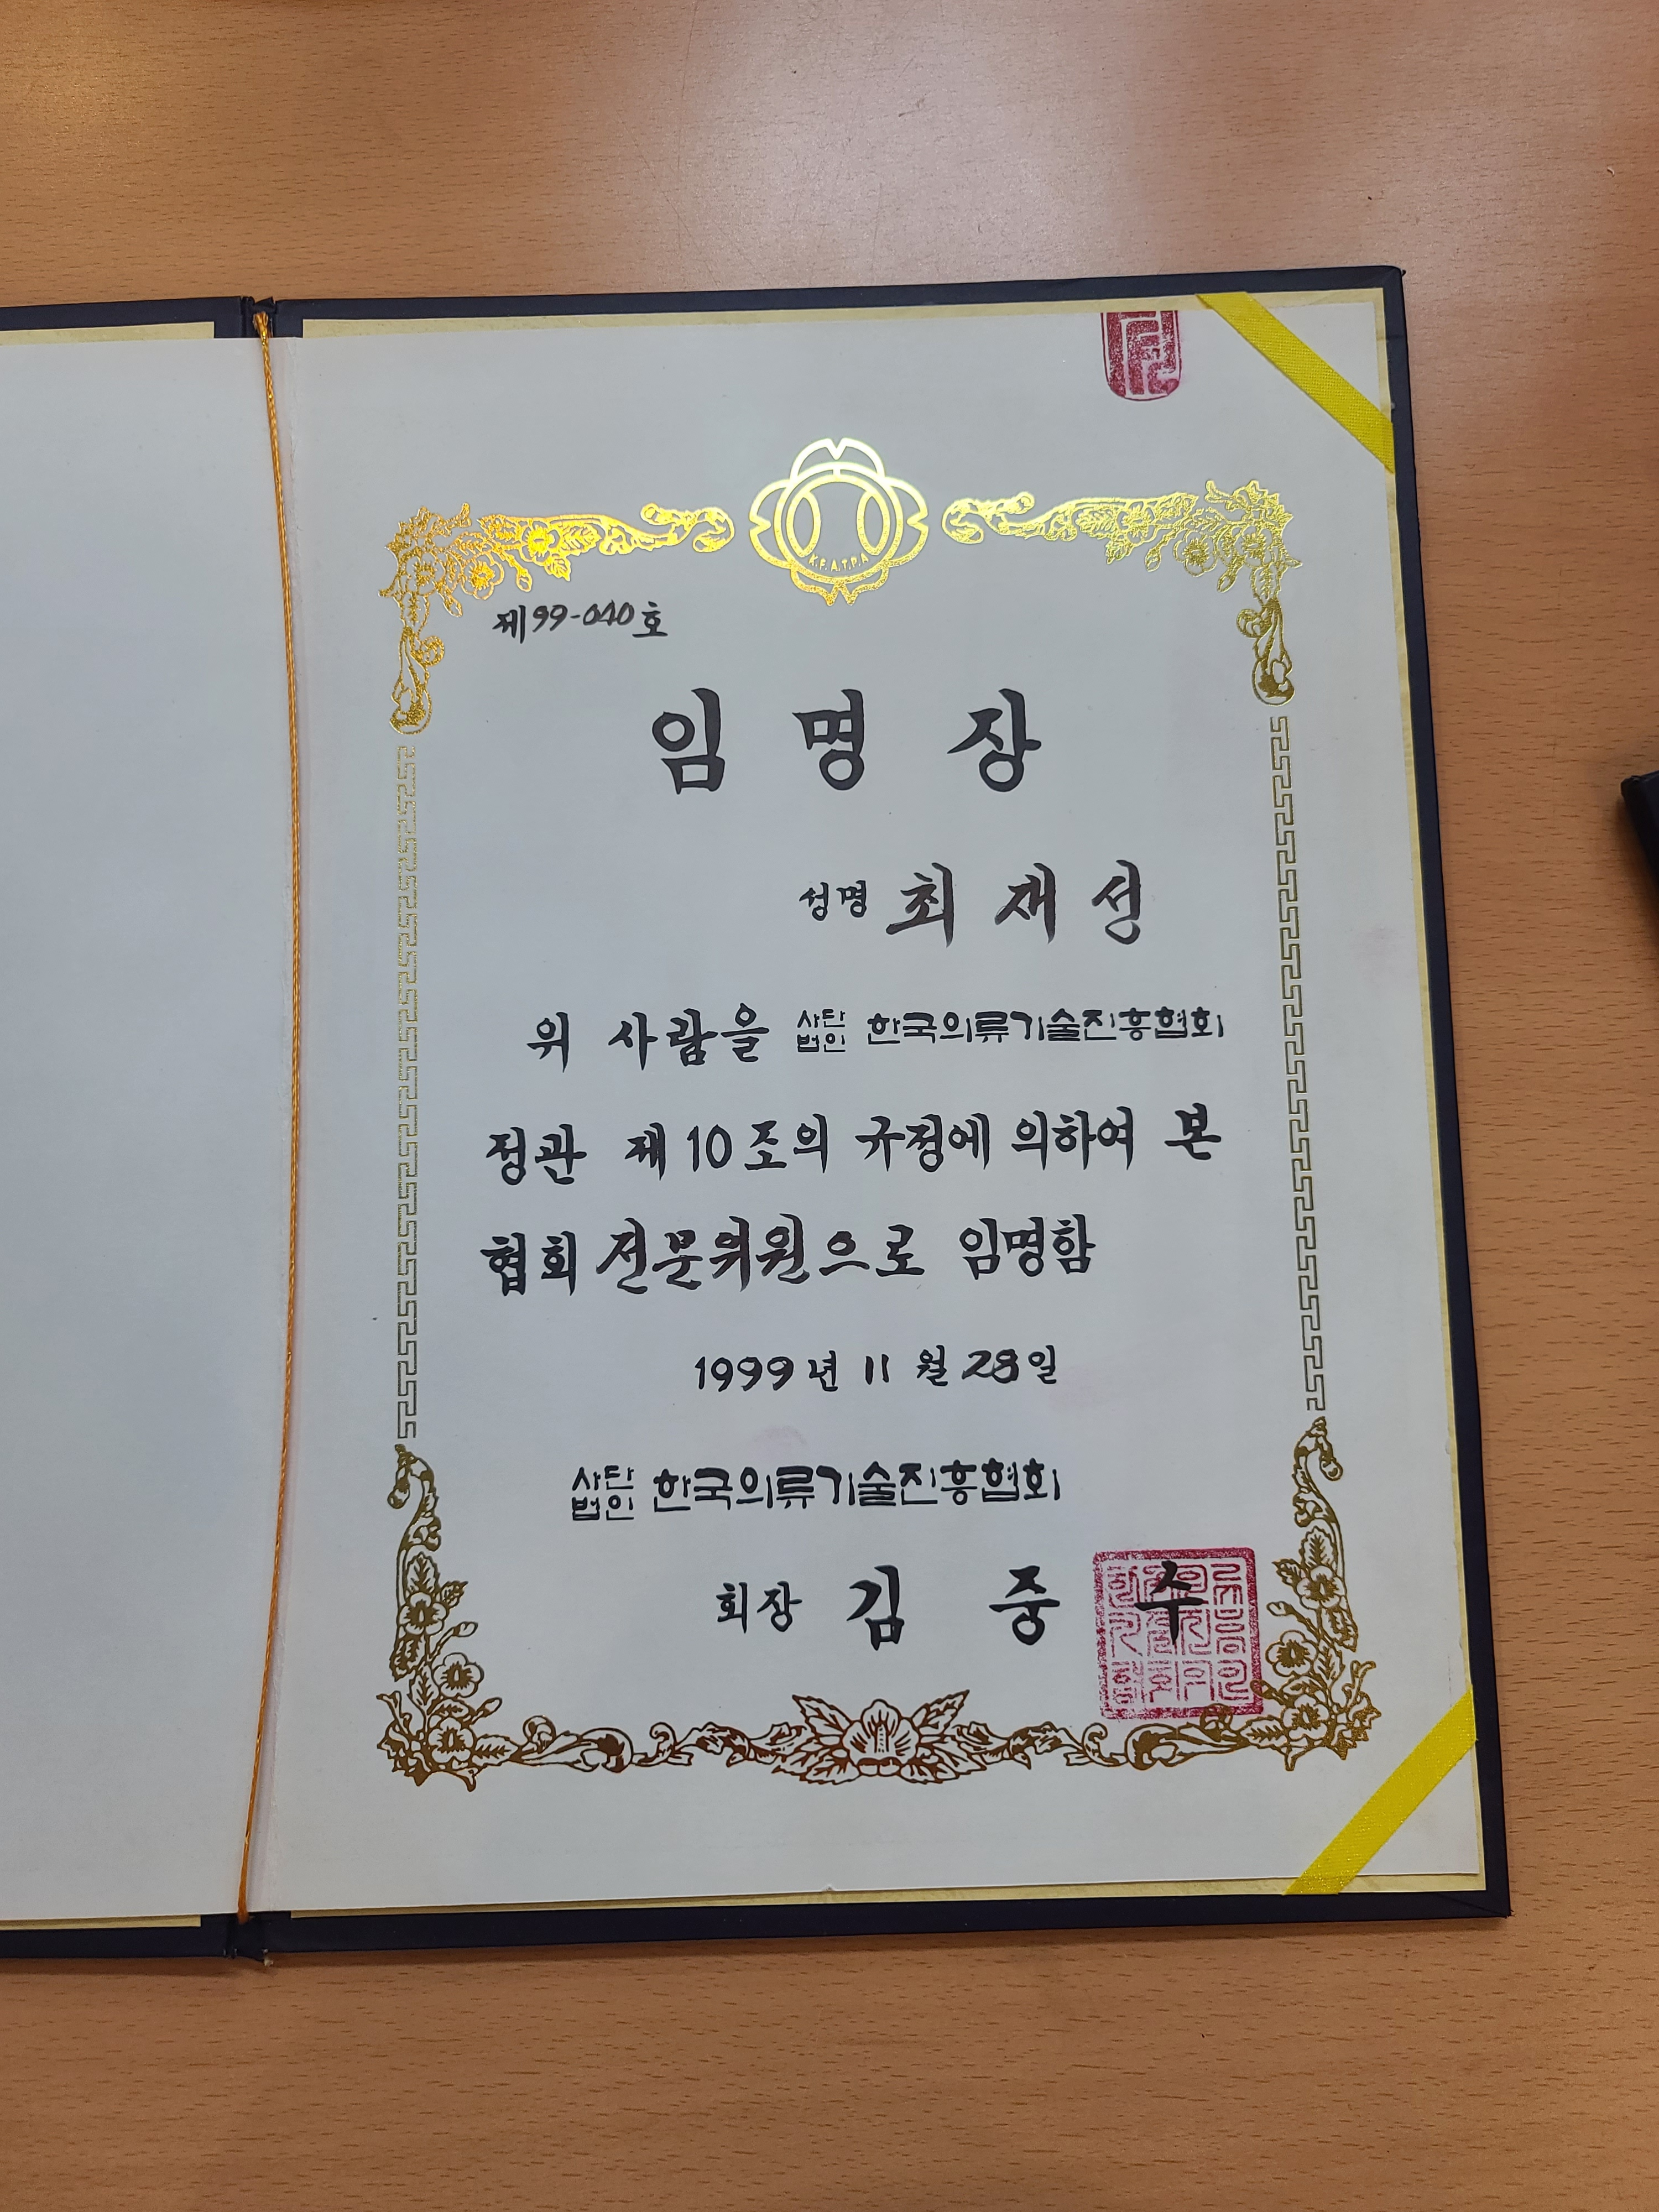 K.F.A.T.P.A
제99-040호
임명장
성명 최재성
위 사람을 사단법인 한국의류기술진흥협회
정관 제10조의 규정에 의하여 본
협회 전문위원으로 임명함
1999년 11월 28일
사단법인 한국의류기술진흥협회
회장 김중수